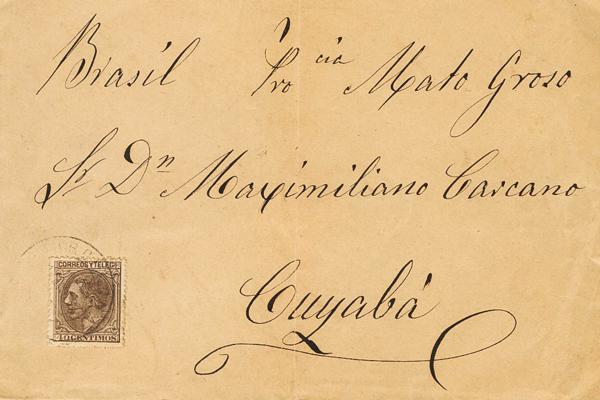 Brasil Pro cia Mato Groso
Sr Dn Maximiliano Carcano
Cuyabá
CORREOS Y TELEGS
40 CENTIMOS